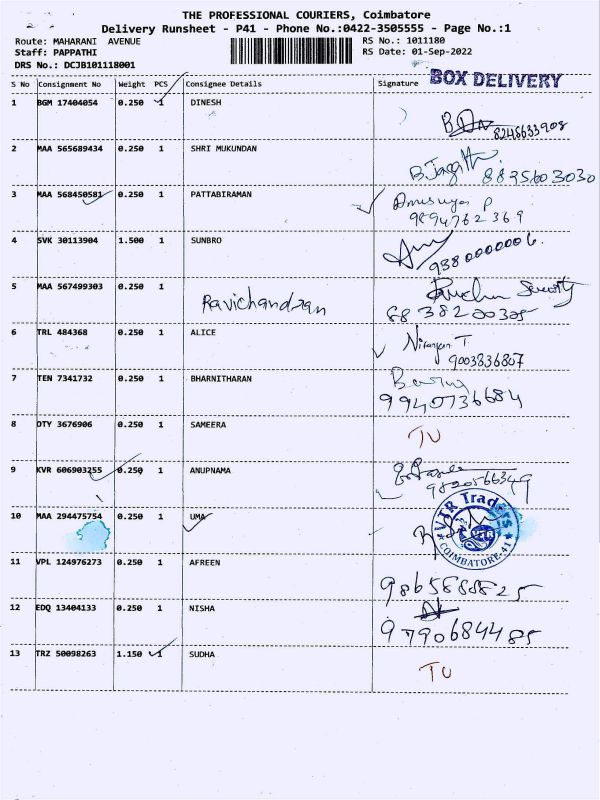 THE PROFESSIONAL COURIERS, Coimbatore
Delivery Runsheet - P41 - Phone No.:0422-3505555 - Page No.:1
Route: MAHARANI AVENUE
RS No.: 1011180
Staff: PAPPATHI
RS Date: 01-Sep-2022
DRS No.: DCJB101118001
BOX DELIVERY
S No Consignment No Weight PCS Consignee Details Signature
1 BGM 17404054 0.250 1 DINESH
8248633908
2 MAA 565689434 0.250 1 SHRI MUKUNDAN
8835603030
3 MAA 568450581 0.250 1 PATTABIRAMAN
9894762369
4 SVK 30113904 1.500 1 SUNBRO
9380000006.
5 MAA 567499303 0.250 1
Ravichandran Security
8838220325
6 TRL 484368 0.250 1 ALICE
Niranjan T
9003836807
7 TEN 7341732 0.250 1 BHARNITHARAN
9940736684
8 OTY 3676906 0.250 1 SAMEERA
TU
9 KVR 606903255 0.250 1 ANUPNAMA
9820566349
10 MAA 294475754 0.250 1 UMA
VTR Traders
COIMBATORE-41
11 VPL 124976273 0.250 1 AFREEN
9865888825
12 EDQ 13404133 0.250 1 NISHA
9790684485
13 TRZ 50098263 1.150 1 SUDHA
TU